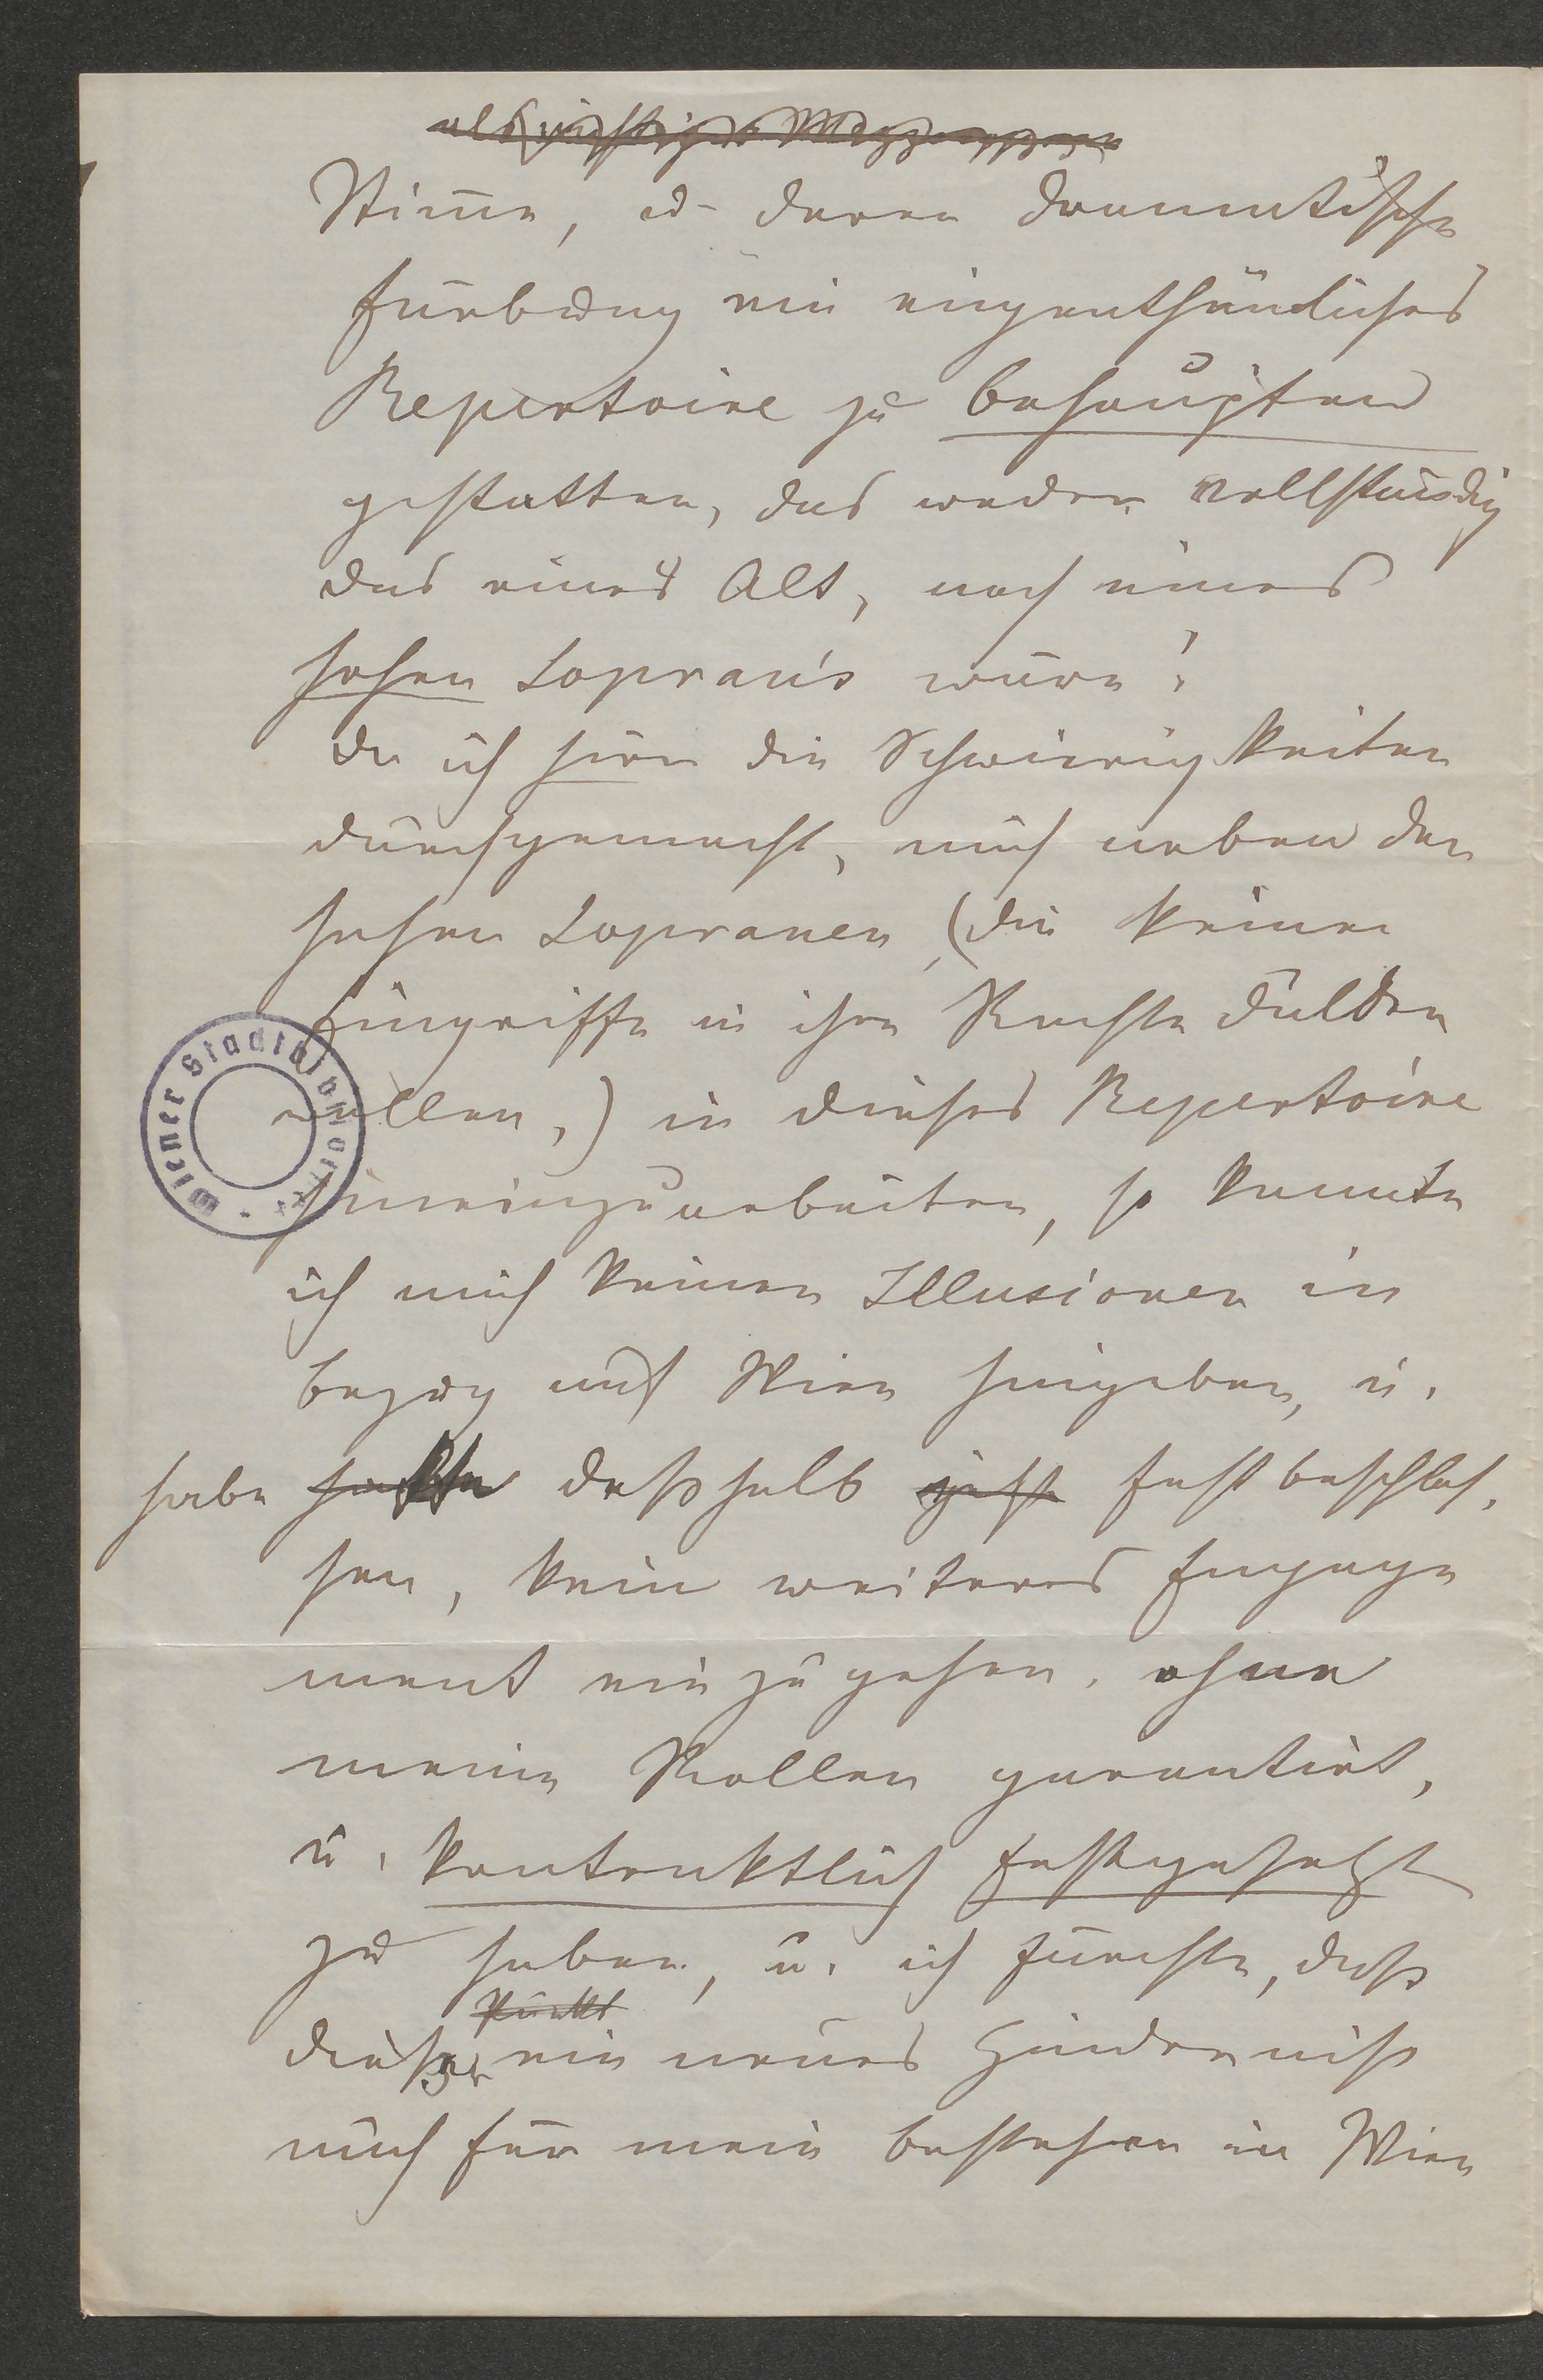 Stimme, u. deren dramatische
Färbung ein eigenthümliches
Repertoire zu behaupten
gestatten, das weder vollständig
das eines Alt, noch eines
hohen Sopran's wäre!
Da ich hier die Schwierigkeiten
durchgemacht, mich neben den
hohen Sopranen, (die keine
Eingriffe in ihre Rechte dulden
wollen,) in dieses Repertoire
hineinzuarbeiten, so konnte
ich mich keinen Illusionen in
bezug auf Wien hingeben, u.
habe deßhalb fest beschlos,
sen, kein weiteres Engage
ment ein zu gehen, ohne
meine Rollen garantirt,
u. kontraktlich festgesetzt
zu haben, u. ich fürchte, daß
Punkt
dieser ein neues Hinderniß
auch für mein bestehen in Wien
Wiener Stadtbibliothek